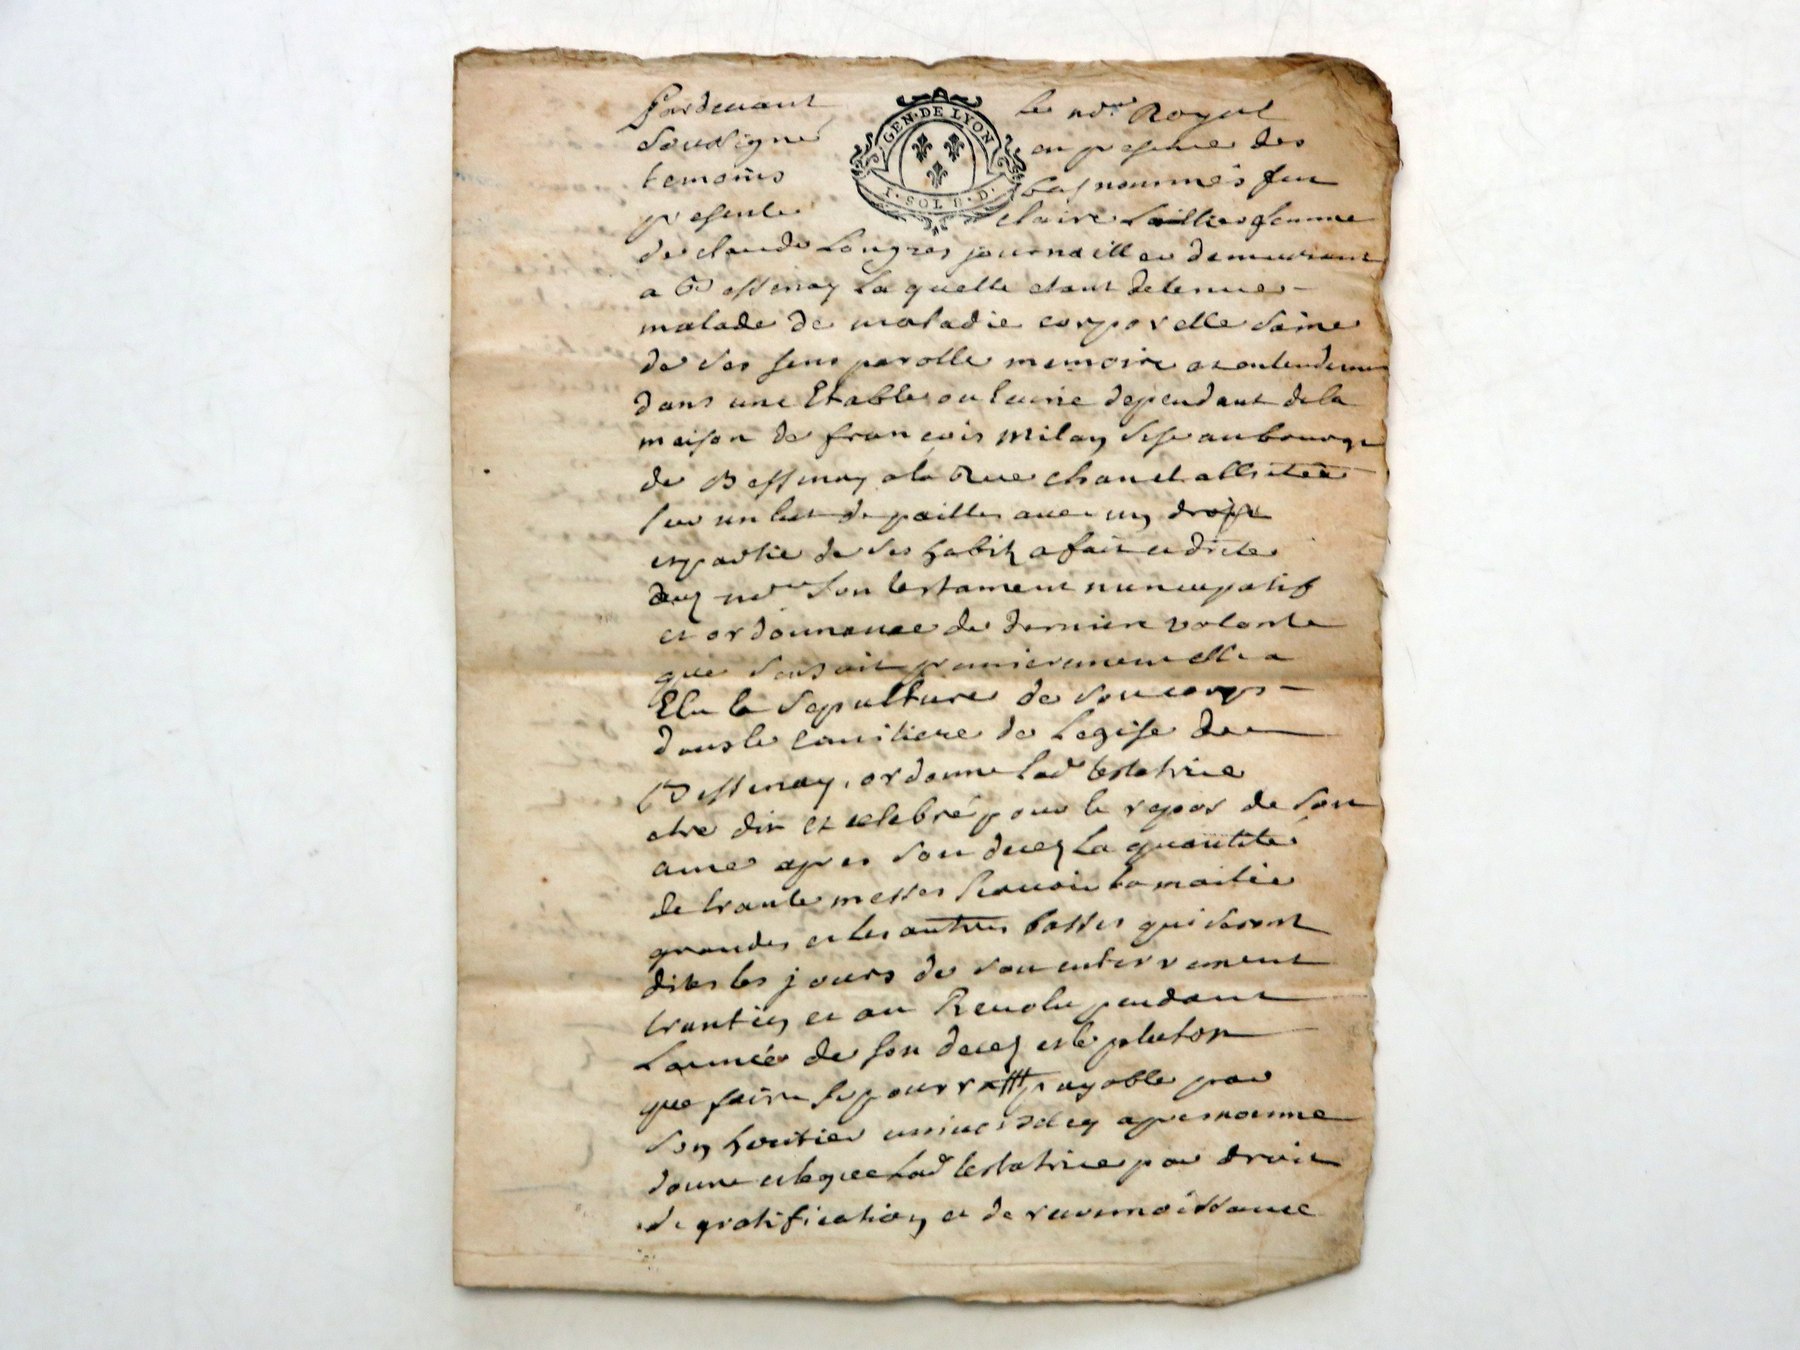 Pardevant le no.re Royal
Sousigné en presence des
temoins bas nommés fut
presente claire femme
de claude Longres journaillier demeurant
a Bessenay La quelle etant detenue
malade de maladie corporelle saine
de ses sens parolle memoire et entendem
dans une Etable ou dependant de la
maison de françois Milan sise au bourg
de Bessenay a la Rue chanel allitée
sur un lict de paille avec un drapt
et partie de ses habitz a fait et dicte
aud no.re son testament nuncupatif
et ordonnance de derniere volonte
que sensuit premierement elle a
Elu la sepulture de son corps
dans le cimitiere de Legise de
Bessenay, ordonne lad testatrice
etre dit et celebré pour le repos de son
ame apres son decez La quantité
de trante messes scavoir la moitié
grandes et les autres basses qui seront
dites les jours de son enterrement
trantin et an Revolu pendant
Lannée de son decez et le plutot
que faire se pourra payable par
son heritier universel cy apres nommé
donne et legue Lad testatrice par droit
de gratification et de reconnoissance
GEN·DE LYON
1·SOL 8·D·